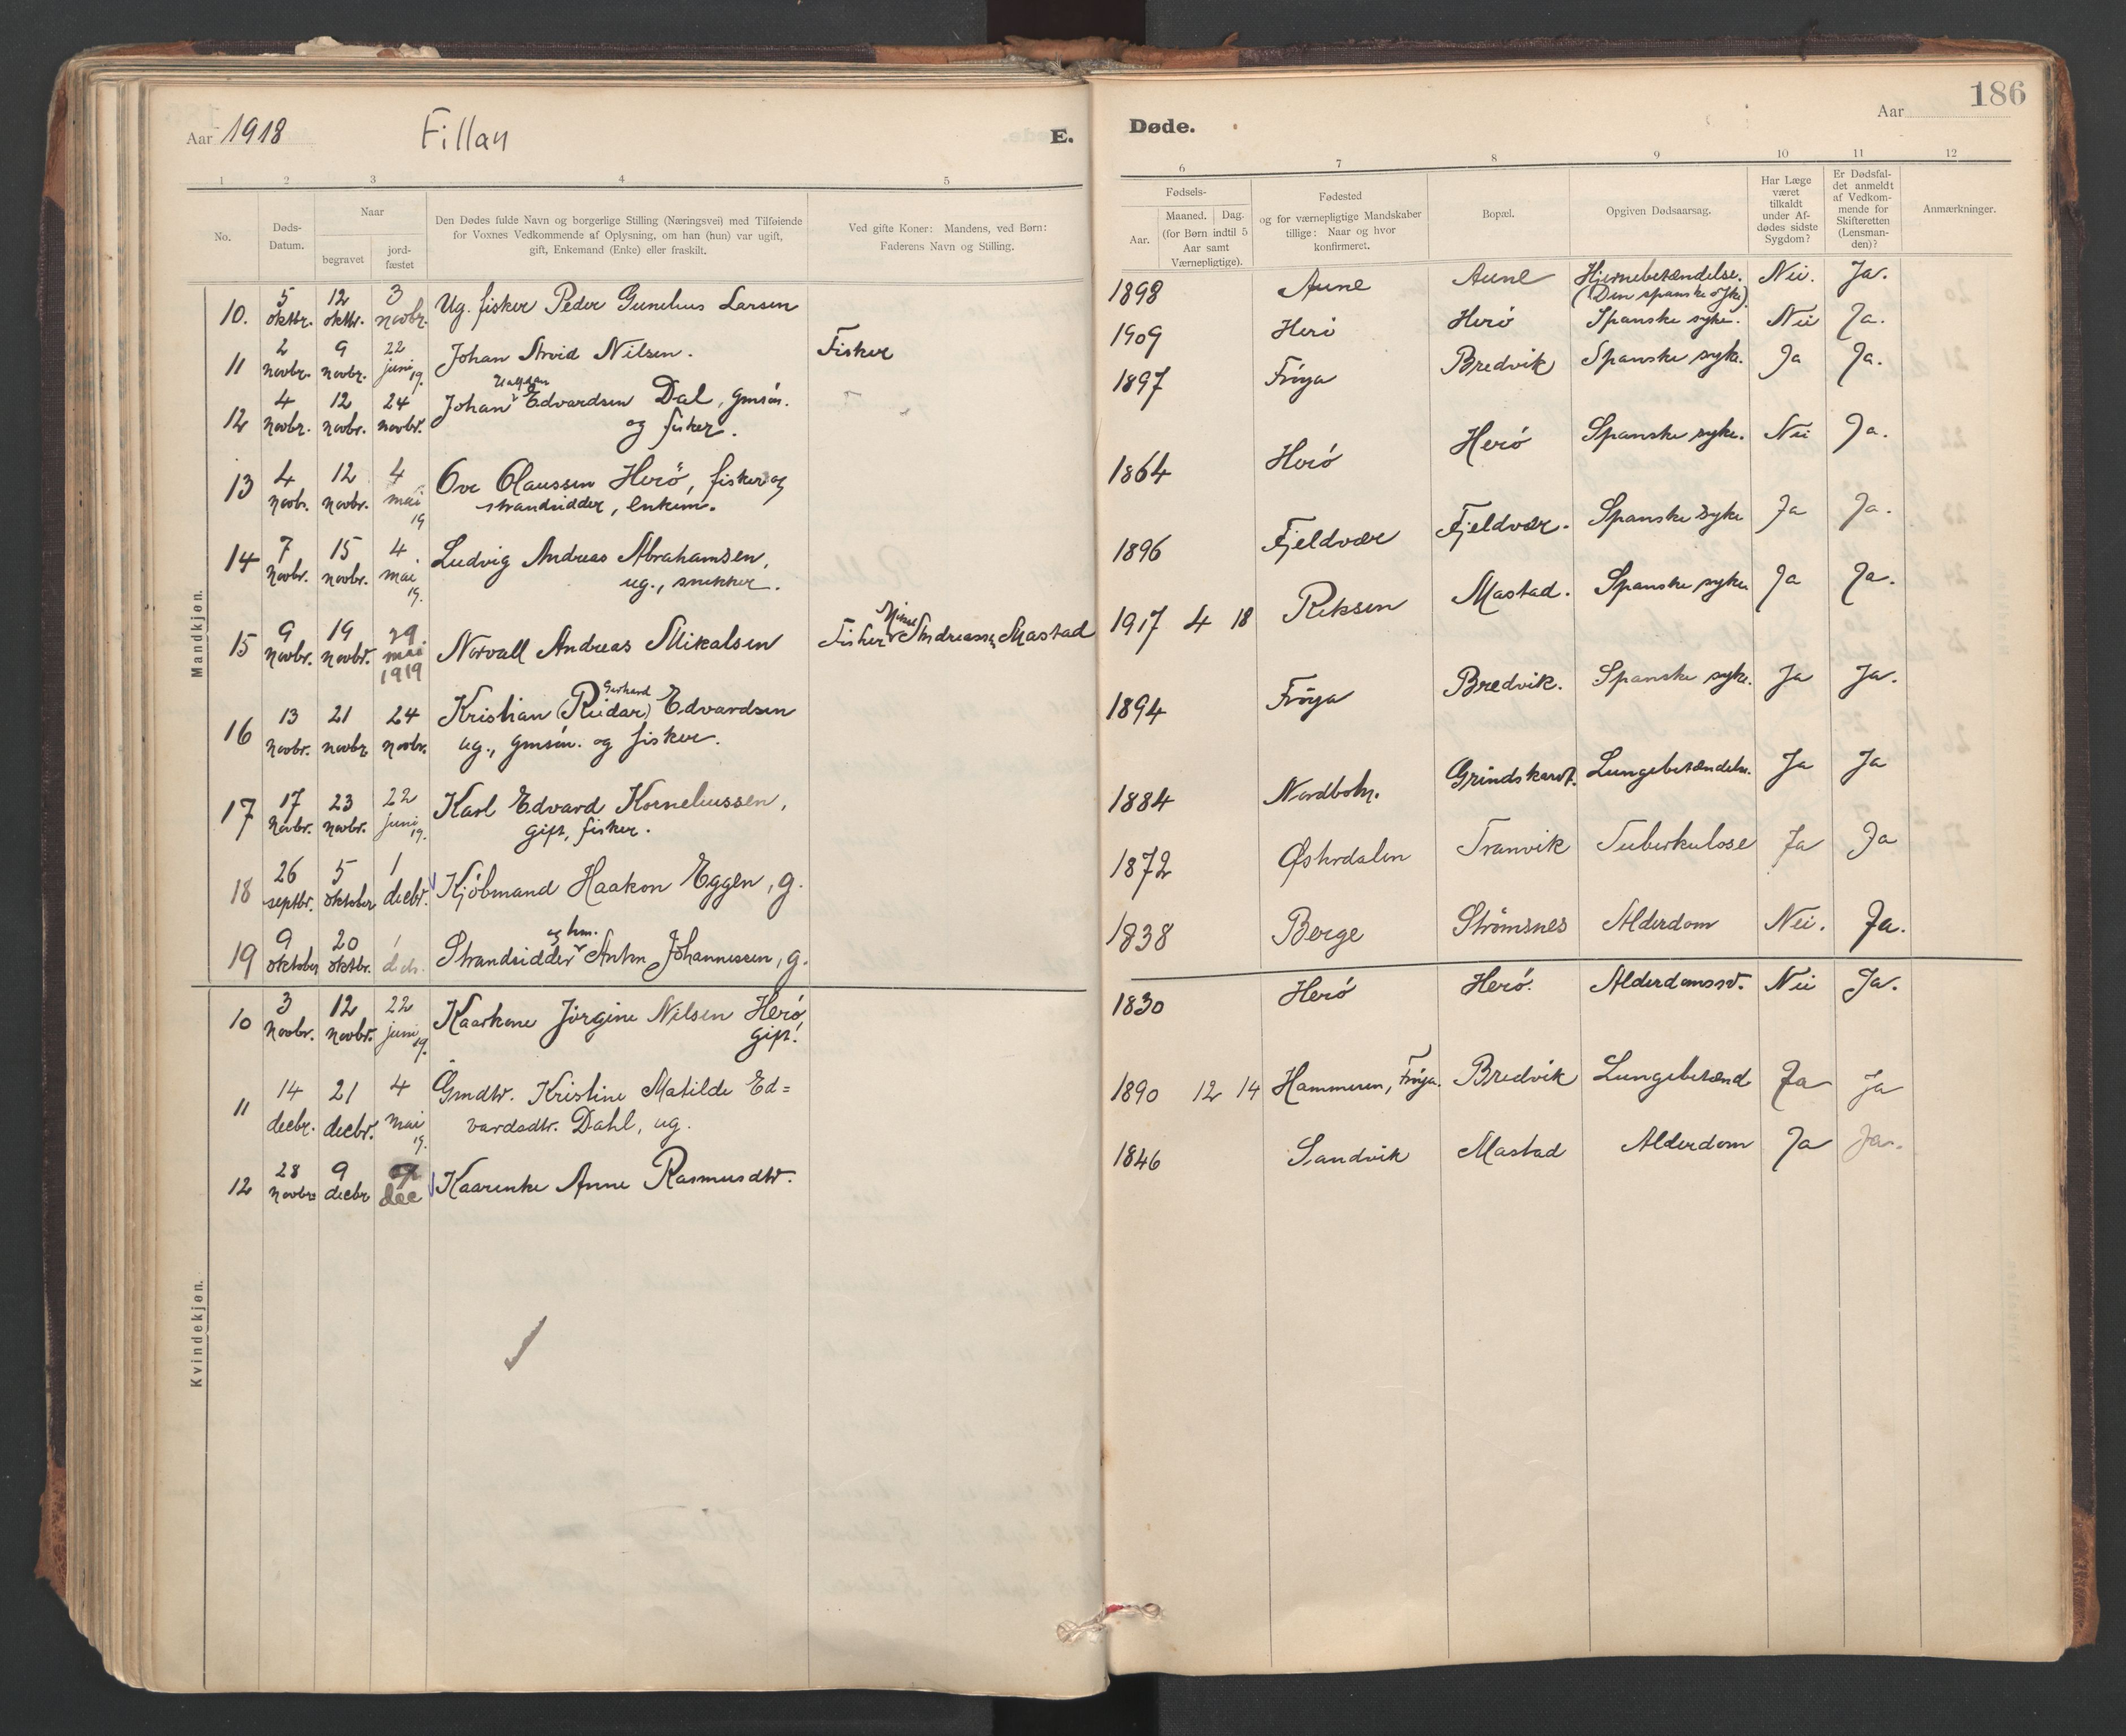 Aar 1918 Fillan E.
Døde. Aar 186
1 2 3 4 5
6 7 8 9 10 11 12
No.
Døds-
Datum.
Naar
begravet
jord-
fæstet
Den Dødes fulde Navn og borgerlige Stilling (Næringsvei) med Tilføiende
for Voxnes Vedkommende af Oplysning, om han (hun) var ugift,
gift, Enkemand (Enke) eller fraskilt.
Ved gifte Koner: Mandens, ved Børn:
Faderens Navn og Stilling.
Fødsels-
Aar.
Maaned. Dag.
(for Børn indtil 5
Aar samt
Værnepligtige).
Fødested
og for værnepligtige Mandskaber
tillige: Naar og hvor
konfirmeret.
Bopæl.
Opgiven Dødsaarsag.
Har Læge
været
tilkaldt
under Af-
dødes sidste
Sygdom?
Er Dødsfal-
det anmeldt
af Vedkom-
mende for
Skifteretten
(Lensman-
den)?
Anmærkninger.
Mandkjøn.
10. 5 oktbr. 12 oktbr. 3 novbr. Ug. fisker Peder Gunelius Larsen 1898 Aune Aune Hjernebetændelse. Nei. Ja.
(Den spanske syke)
11 2 novbr. 9 novbr. 22 juni 19. Johan Arvid Nilsen. Fisker 1909 Herö Herö Spanske syke. Nei Ja.
12 4 novbr. 12 novbr. 24 novbr. Johan Edvardsen Dal, gmsön. 1897 Fröya Bredvik Spanske syke. Ja Ja.
og fisker.
13 4 novb. 12 novbr. 4 mai 19 Ove Olaussen Herö, fisker og 1864 Herö Herö Spanske syke. Nei Ja.
strandsidder, enkem.
14 7 novbr. 15 novbr. 4 mai 19. Ludvig Andreas Abrahamsen, 1896 Fjeldvær Fjeldvær. Spanske syke Ja Ja.
ug., snekker.
15 9 novbr. 19 novbr. 29. mai 1919 Norvall Andreas Mikalsen Fisker Mikal Andreassen Mastad 1917 4 18 Reksen Mastad. Spanske syke Ja Ja.
16 13 novbr. 21 novbr 24 novbr. Kristian (Reidar) Gerhard Edvardsen 1894 Fröya Bredvik. Spanske syke. Ja Ja.
ug., gmsön. og fisker.
17 17 novbr. 23 novbr. 22 juni 19. Karl Edvard Korneliussen, 1884 Nordbotn. Grindskardt. Lungebetændelse. Ja Ja
gift, fisker.
18 26 septbr. 5 oktober 1 decbr. Kjöbmand Haakon Eggen, g. 1872 Østerdalen Tranvik Tuberkulose Ja Ja
19 9 oktober 20 oktbr. 1 dcbr. Strandsidder og hm. Anton Johannessen, g. 1838 Berge Strömsnes Alderdom Nei. Ja.
Kvindekjøn.
10 3 novbr. 12 novbr. 22 juni 19. Kaarkone Jörgine Nilsen Herö 1830 Herö Herö. Alderdomssv. Nei Ja.
gift.
11 14 decbr. 21 decbr. 4 mai 19. Gmdtr. Kristine Matilde Ed= 1890 12 14 Hammeren, Fröya. Bredvik Lungebetænd Ja Ja
vardsdtr. Dahl, ug.
12 28 novbr 9 decbr 9 dec Kaarenke Anne Rasmusdtr. 1846 Sandvik Mastad Alderdom Ja Ja.